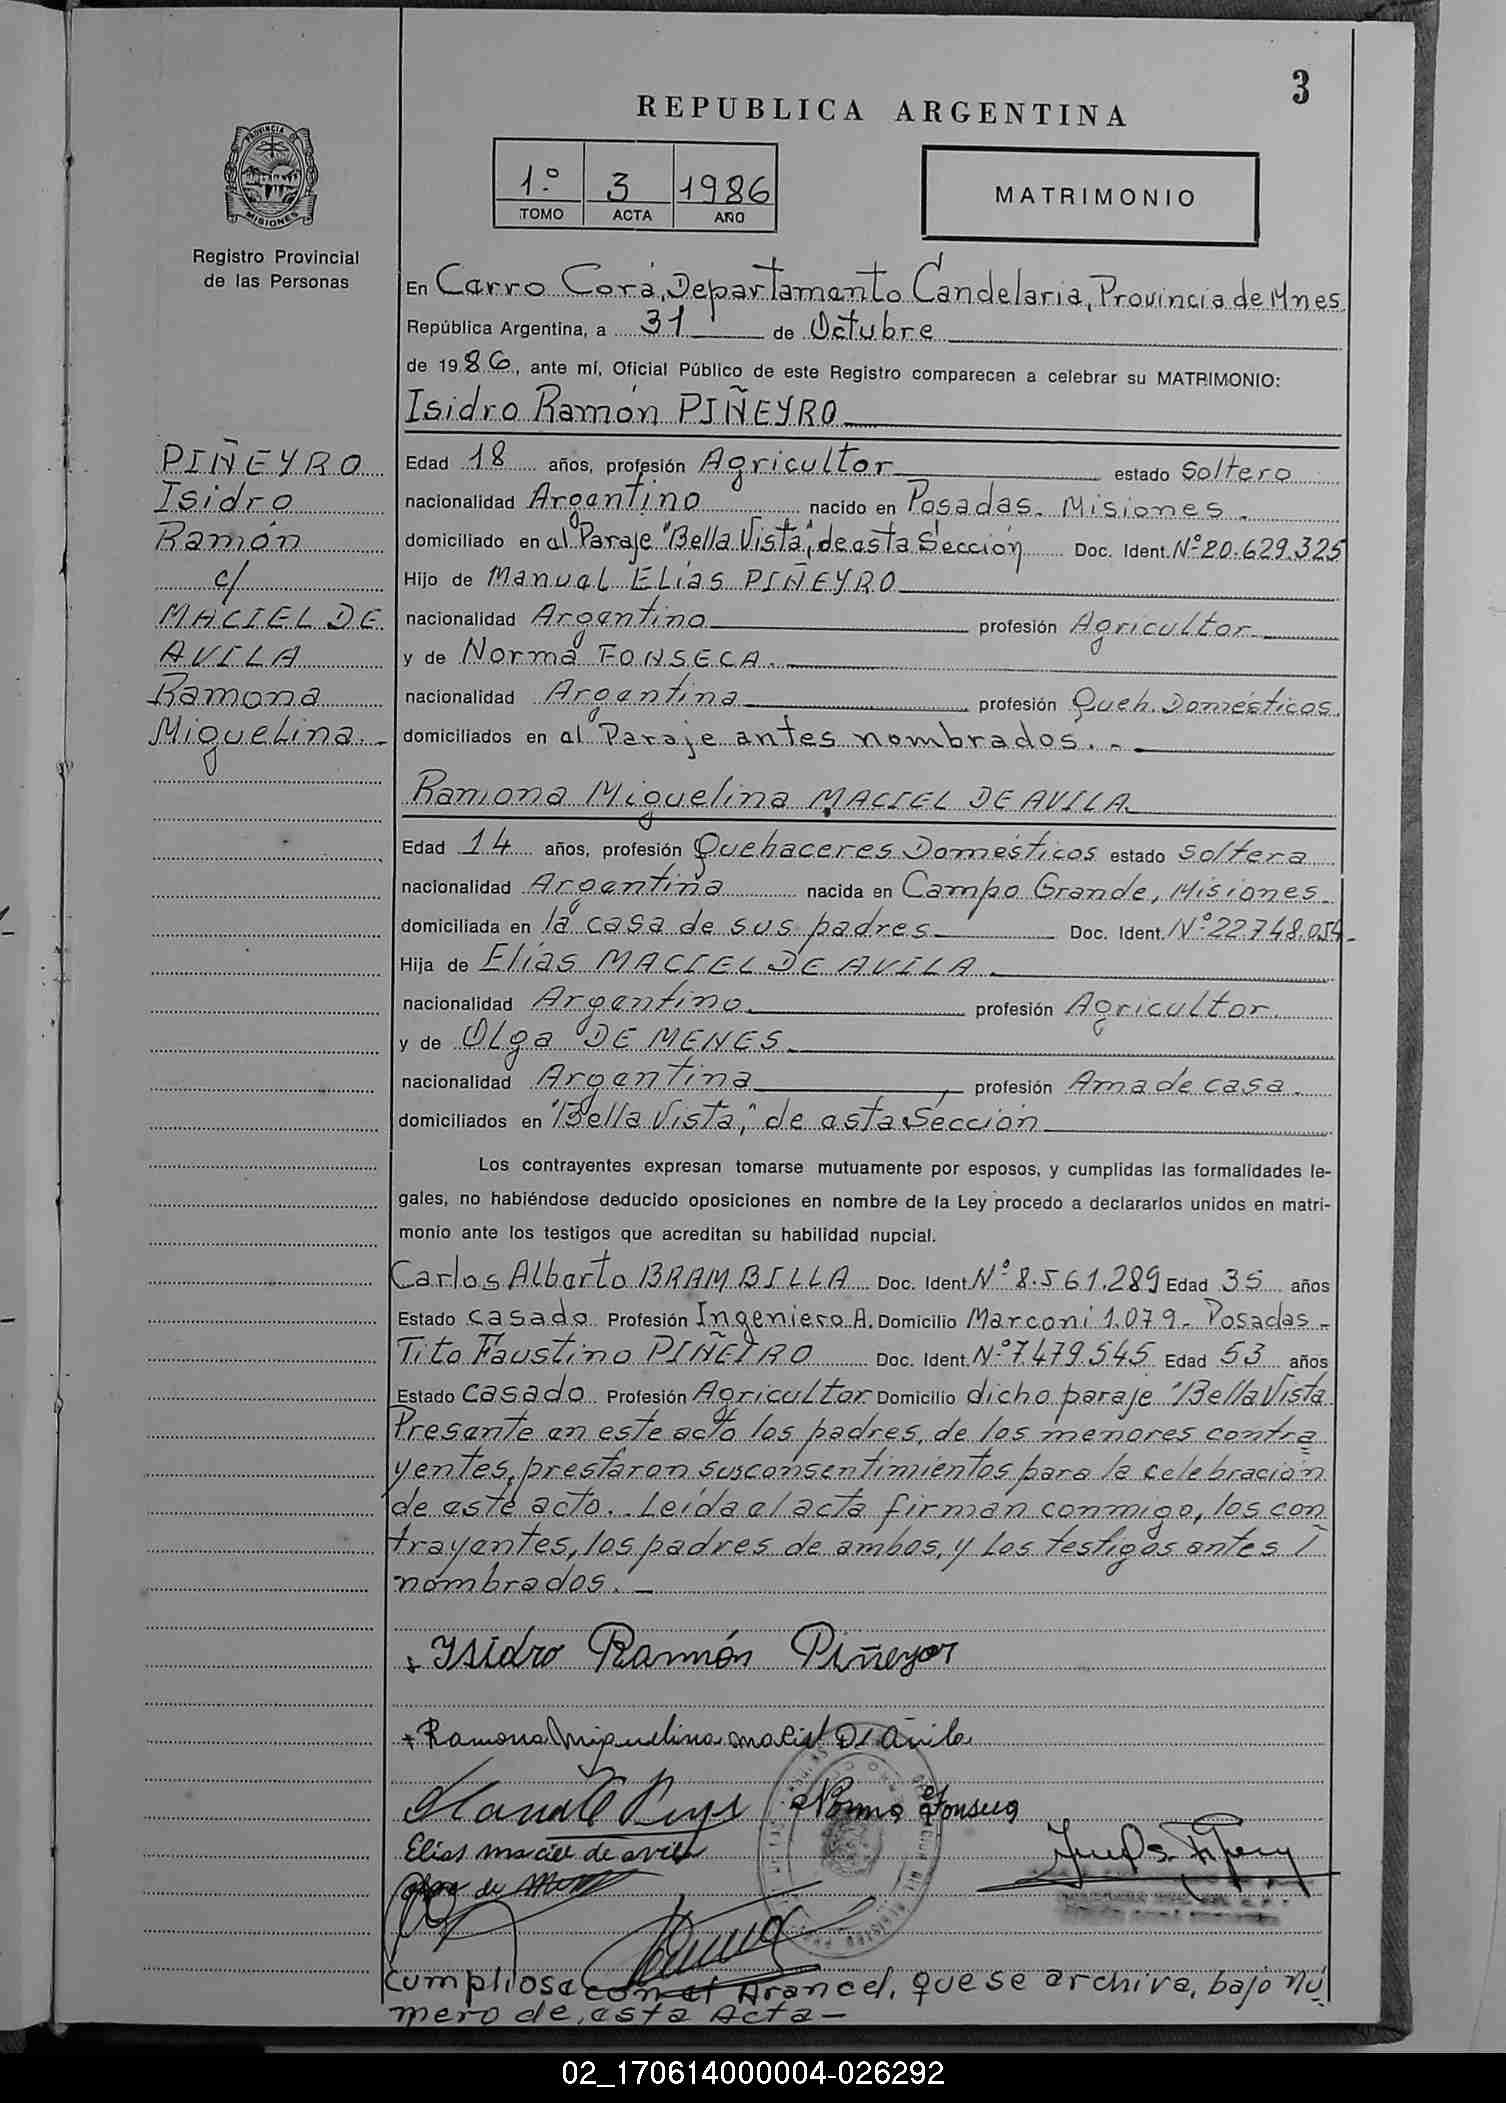 3
REPUBLICA ARGENTINA
PROVINCIA DE
MISIONES
Registro Provincial
de las Personas
1º 3 1986
TOMO ACTA AÑO
MATRIMONIO
En Cerro Corá, Departamento Candelaria, Provincia de Mnes.
República Argentina, a 31 de Octubre
de 1986, ante mí, Oficial Público de este Registro comparecen a celebrar su MATRIMONIO:
Isidro Ramón PIÑEYRO
PIÑEYRO
Isidro
Ramón
c/
MACIEL DE
AVILA
Ramona
Miguelina.-
Edad 18 años, profesión Agricultor estado Soltero
nacionalidad Argentino nacido en Posadas. Misiones.
domiciliado en el Paraje "Bella Vista", de esta Sección Doc. Ident. Nº 20.629.325
Hijo de Manuel Elías PIÑEYRO
nacionalidad Argentino profesión Agricultor
y de Norma FONSECA.
nacionalidad Argentina profesión Queh. Domésticos.
domiciliados en el Paraje antes nombrados.-
Ramona Miguelina MACIEL DE AVILA
Edad 14 años, profesión Quehaceres Domésticos estado soltera
nacionalidad Argentina nacida en Campo Grande, Misiones.
domiciliada en la casa de sus padres Doc. Ident. Nº 22.748.054.-
Hija de Elías MACIEL DE AVILA
nacionalidad Argentino profesión Agricultor.
y de Olga DE MENES
nacionalidad Argentina, profesión Ama de casa.
domiciliados en "Bella Vista," de esta Sección
Los contrayentes expresan tomarse mutuamente por esposos, y cumplidas las formalidades le-
gales, no habiéndose deducido oposiciones en nombre de la Ley procedo a declararlos unidos en matri-
monio ante los testigos que acreditan su habilidad nupcial.
Carlos Alberto BRAMBILLA Doc. Ident. Nº 8.561.289 Edad 35 años
Estado casado Profesión Ingeniero A. Domicilio Marconi 1.079.- Posadas.-
Tito Faustino PIÑEYRO Doc. Ident. Nº 7.479.545 Edad 53 años
Estado casado Profesión Agricultor Domicilio dicho paraje "Bella Vista
Presente en este acto los padres, de los menores contra
yentes, prestaron sus consentimientos para la celebración
de este acto.. Leída el acta firman conmigo, los con
trayentes, los padres de ambos, y los testigos antes
nombrados.-
Isidro Ramón Piñeyor
Ramona Miguelina Maciel De Avila
Norma Fonseca
Elias maciel de avila
Cumpliose con el Arancel, que se archiva, bajo nú
mero de, esta Acta-
02_170614000004-026292